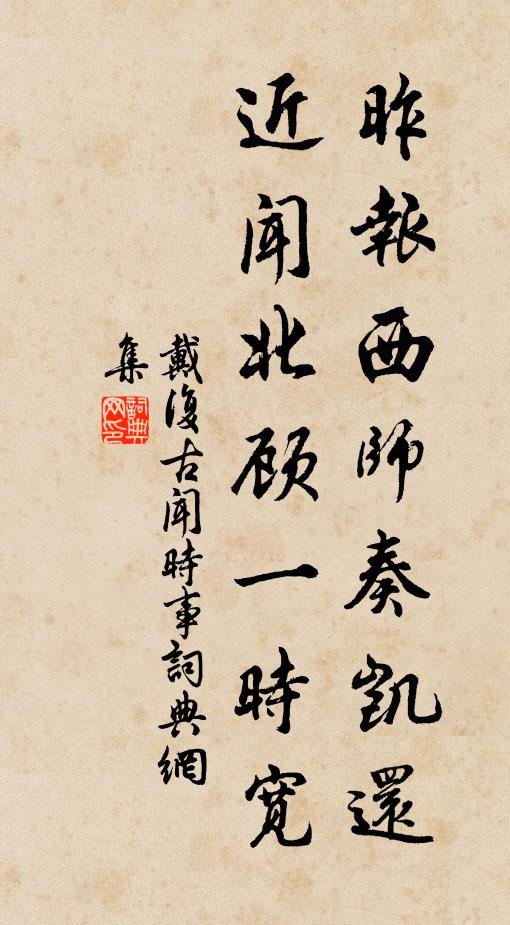 昨報西師奏凱還
近聞北顾一時寬
戴復古聞時事詞典網
集
詞典网印